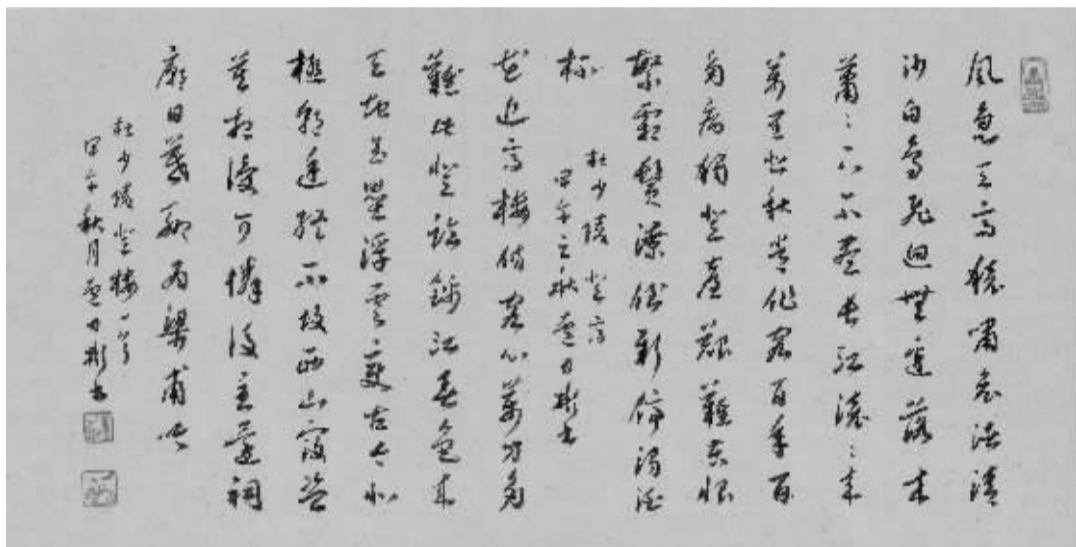 風急天高猿嘯哀渚清
沙白鳥飛迴無邊落木
蕭〻下不盡長江滾〻来
萬里悲秋常作客百年百
多病獨登臺艱難苦恨
繁霜鬢潦倒新停濁酒
杯
杜少陵登高
甲午之秋彬書
花近高樓傷客心萬方多
難此登臨錦江春色来
天地玉壘浮雲變古今北
極朝廷終不改西山寇盜
莫相侵可憐後主還祠
廟日暮聊為梁甫吟
杜少陵登樓一首
甲午秋月彬書